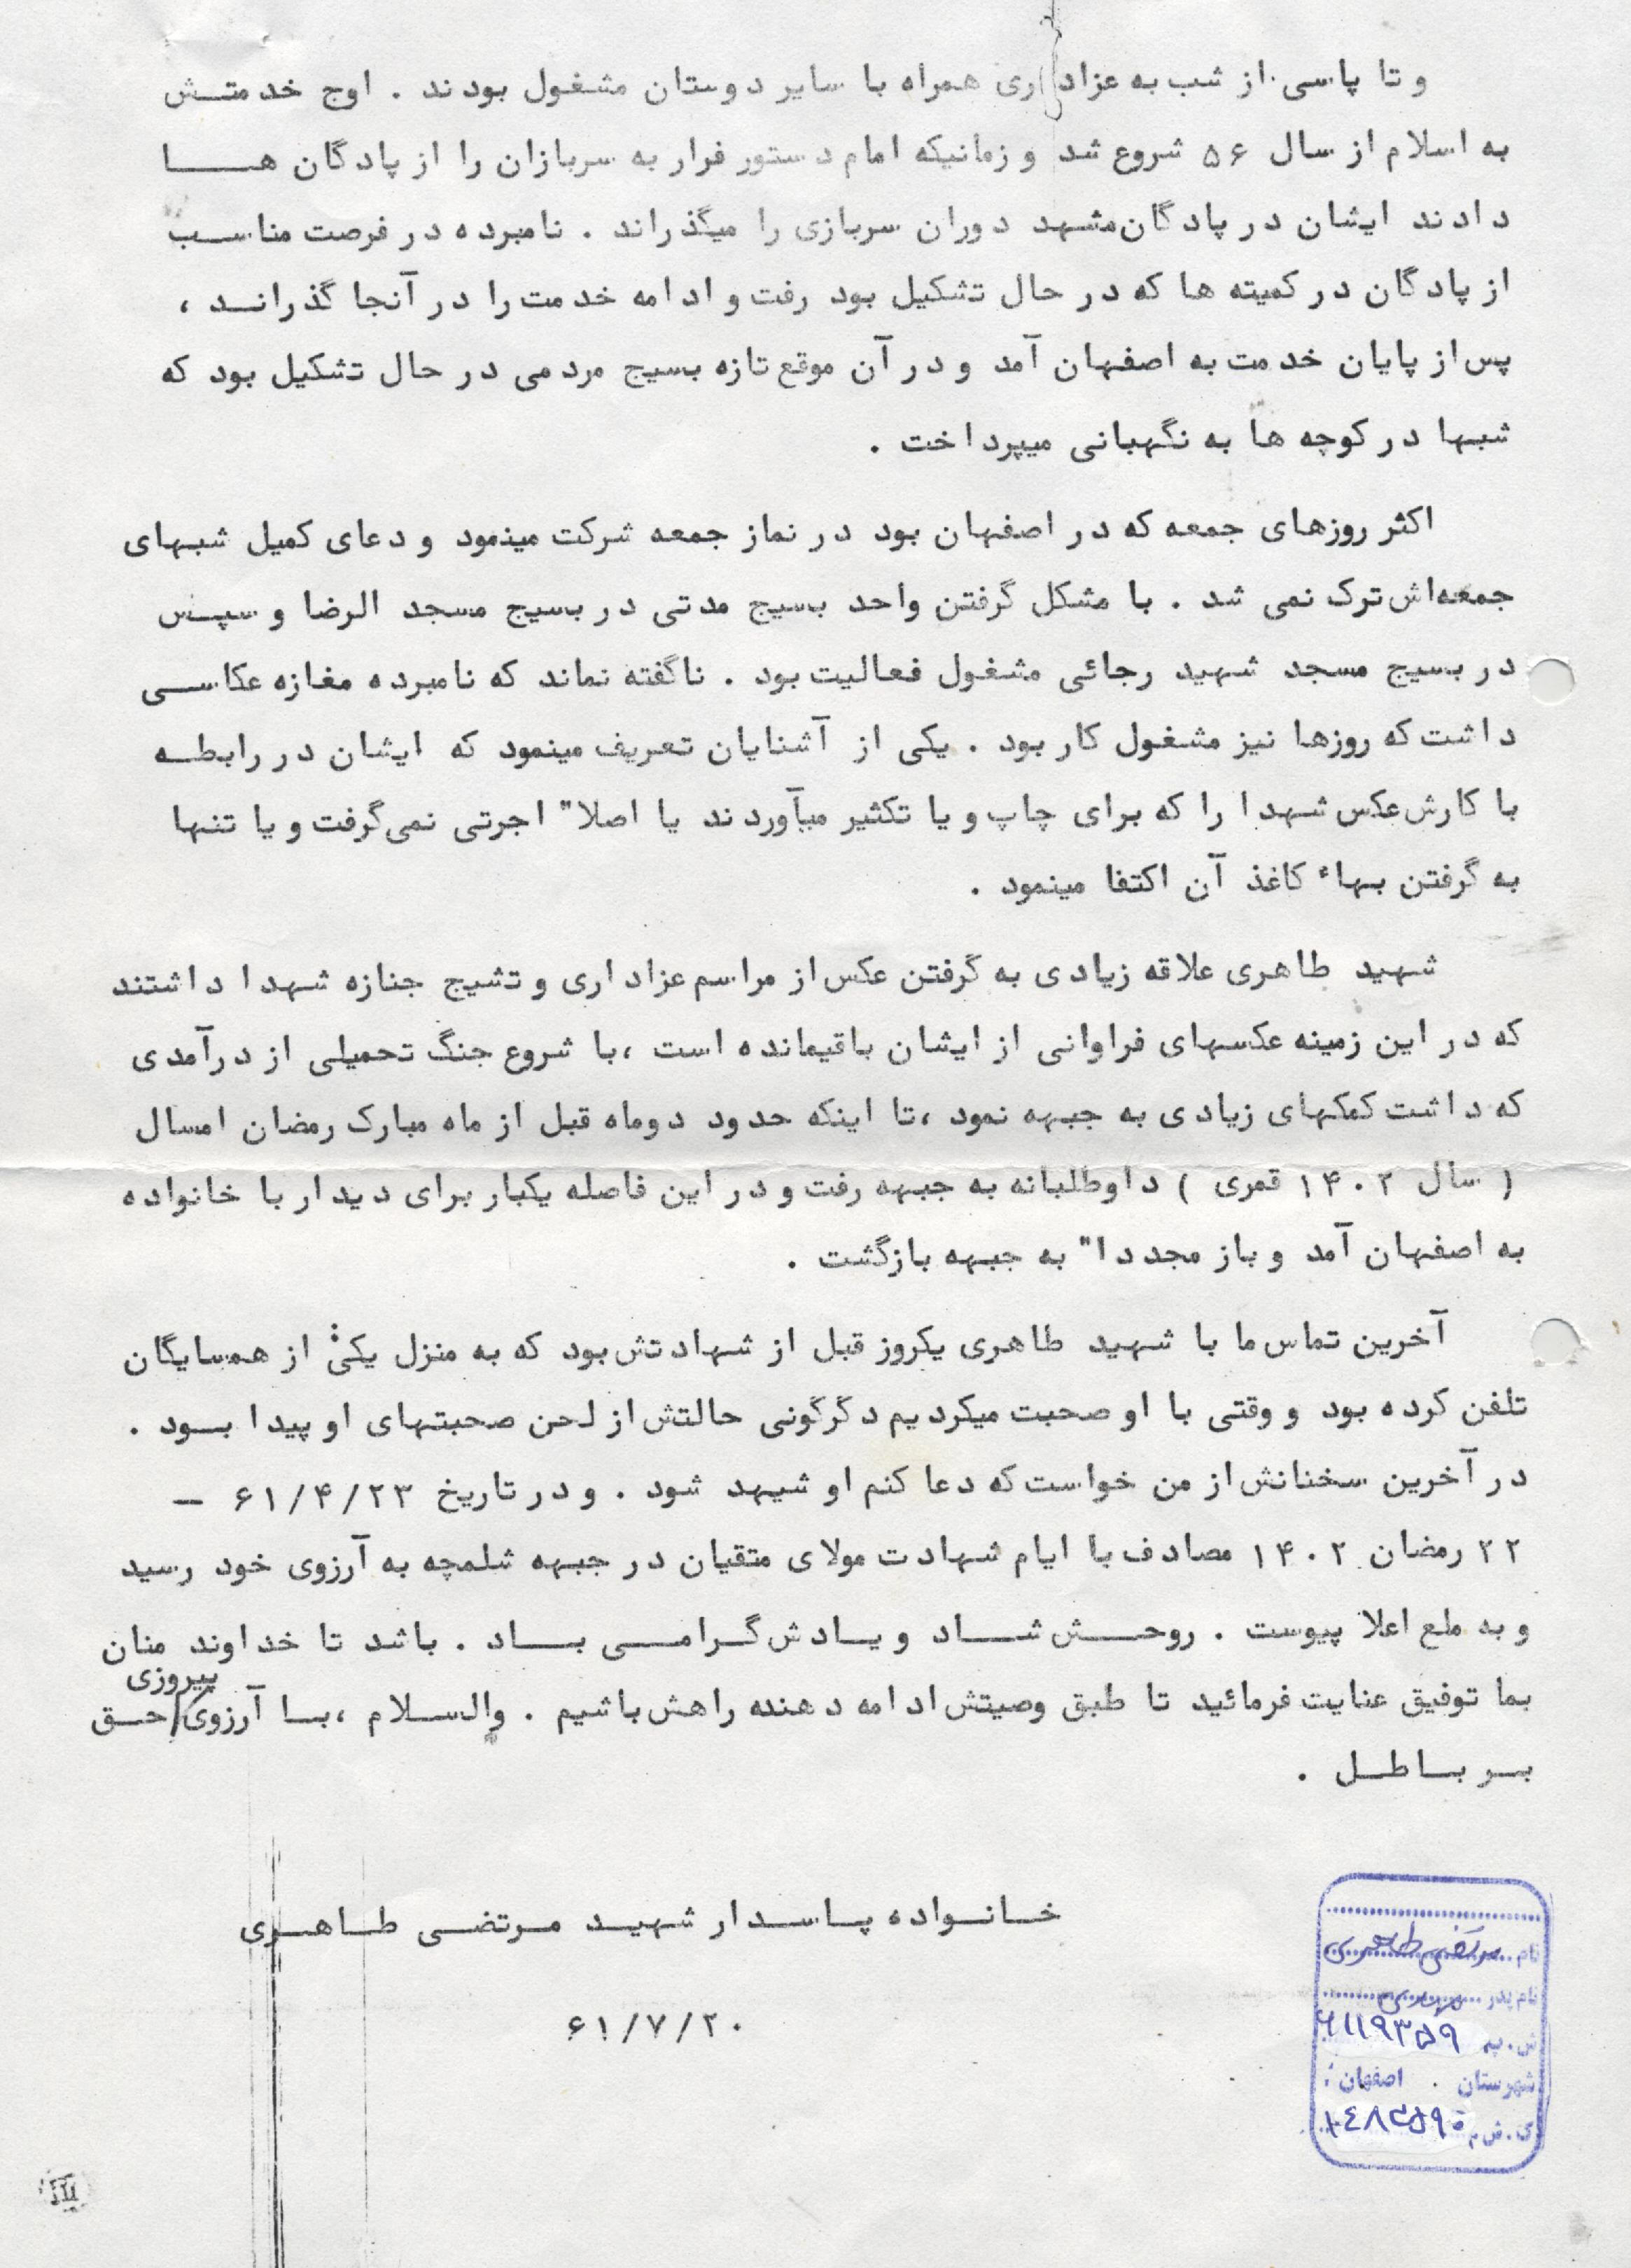 و تا پاسی از شب به عزاداری همراه با سایر دوستان مشغول بودند . اوج خدمتش
به اسلام از سال ۵۶ شروع شد و زمانیکه امام دستور فرار به سربازان را از پادگان هـا
دادند ایشان در پادگان مشهد دوران سربازی را میگذراند . نامبرده در فرصت مناسب
از پادگان در کمیته ها که در حال تشکیل بود رفت و ادامه خدمت را در آنجا گذرانـد ،
پس از پایان خدمت به اصفهان آمد و در آن موقع تازه بسیج مردمی در حال تشکیل بود که
شبها در کوچه ها به نگهبانی میپرداخت .
اکثر روزهای جمعه که در اصفهان بود در نماز جمعه شرکت مینمود و دعای کمیل شبهای
جمعه‌اش ترک نمی شد . با مشکل گرفتن واحد بسیج مدتی در بسیج مسجد الرضا و سپـس
در بسیج مسجد شهید رجائی مشغول فعالیت بود . ناگفته نماند که نامبرده مغازه عکاســی
داشت که روزها نیز مشغول کار بود . یکی از آشنایان تعریف مینمود که ایشان در رابطــه
با کارش عکس شهدا را که برای چاپ و یا تکثیر میآوردند یا اصلا" اجرتی نمی‌گرفت و یا تنها
به گرفتن بهاء کاغذ آن اکتفا مینمود .
شهید طاهری علاقه زیادی به گرفتن عکس از مراسم عزاداری و تشیج جنازه شهدا داشتند
که در این زمینه عکسهای فراوانی از ایشان باقیمانده است ،با شروع جنگ تحمیلی از درآمدی
که داشت کمکهای زیادی به جبهه نمود ،تا اینکه حدود دوماه قبل از ماه مبارک رمضان امسال
( سال ۱۴۰۲ قمری ) داوطلبانه به جبهه رفت و در این فاصله یکبار برای دیدار با خانواده
به اصفهان آمد و باز مجددا" به جبهه بازگشت .
آخرین تماس ما با شهید طاهری یکروز قبل از شهادتش بود که به منزل یکی از همسایگان
تلفن کرده بود و وقتی با او صحبت میکردیم دگرگونی حالتش از لحن صحبتهای او پیدا بــود .
در آخرین سخنانش از من خواست که دعا کنم او شیهد شود . و در تاریخ ۶۱/۴/۲۳ —
۲۲ رمضان ۱۴۰۲ مصادف با ایام شهادت مولای متقیان در جبهه شلمچه به آرزوی خود رسید
و به ملع اعلا پیوست . روحــش شــاد و یــادش گــرامــی بــاد . باشد تا خداوند منان
پیروزی
بما توفیق عنایت فرمائید تا طبق وصیتش ادامه دهنده راهش باشیم . والســلام ،بــا آرزوی حــق
بــر بــاطــل .
خــانــواده پــاســدار شهیــد مــرتضــی طــاهــری
۶۱/۷/۲۰
نام مرتضی طاهری
نام پدر مهدی
ش.پ ۶۱۱۹۳۵۹
شهرستان . اصفهان
ک.ش.م